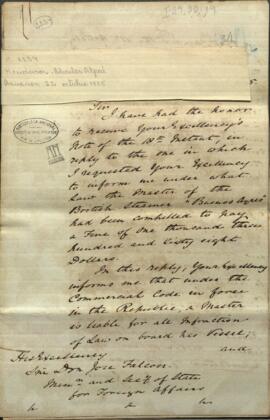 I have had the honor
to receive Your Excellency's
Note of the 18th Instant, in
reply to the one in which
I requested Your Excellency
to inform me under what
Law the Master of the
British Steamer "Buenos Ayres"
had been compelled to pay
a Fine of One thousand three
hundred and sixty eight
Dollars.
In this reply, Your Excellency
informs me that under the
Commercial Code in force
in the Republic, a Master
is liable for all Infraction
of Law on board his Vessel,
and
His Excellency
Señor Don Jose Falcon
Minr and Secy of State
for Foreign Affairs